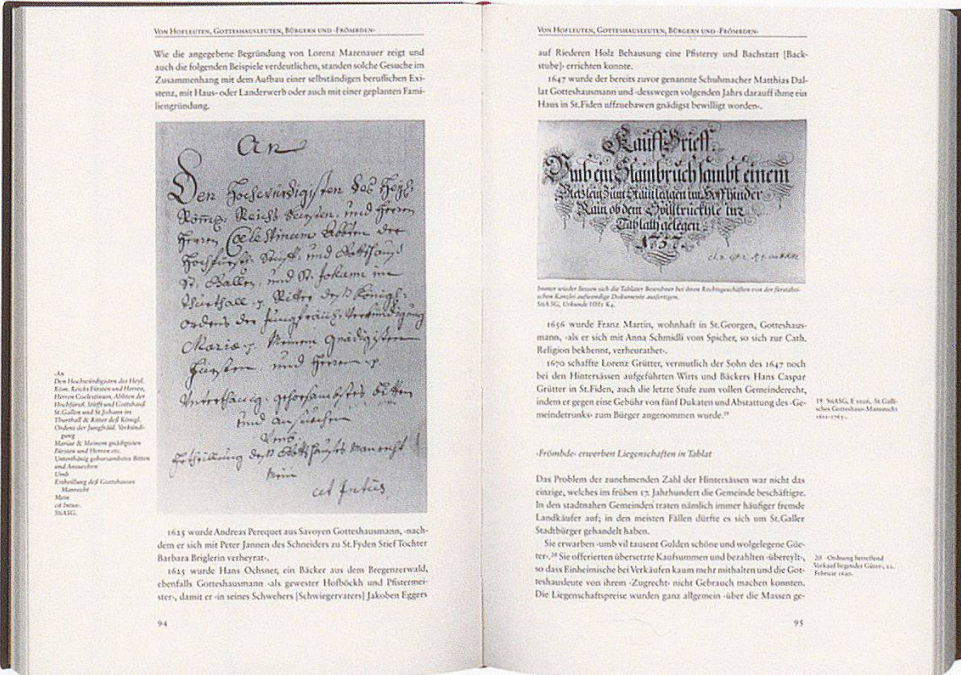 VON HOFLEUTEN, GOTTESHAUSLEUTEN, BÜRGERN UND ‹FRÖMBDEN›
Wie die angegebene Begründung von Lorenz Marenauer zeigt und
auch die folgenden Beispiele verdeutlichen, standen solche Gesuche im
Zusammenhang mit dem Aufbau einer selbständigen beruflichen Exi-
stenz, mit Haus- oder Landerwerb oder auch mit einer geplanten Fami-
liengründung.
An
Den Hochwürdigisten des Heyl.
Röm. Reichs Fürsten und Herren,
Herren Coelestinum, Abbten der
Hochfürstl. Stüfft und Gottshaus
St. Gallen und St. Johann im
Thurthall & Ritter deß Königl.
Ordens der Jungfräul. Verkündi-
gung
Mariae & Meinem gnädigisten
Fürsten und Herren etc.
Unterthänig gehorsambstes Bitten
und Ansuechen
Umb
Ertheillung deß Gottshauses Manrecht
Mein
cit Intus
‹An
Den Hochwürdigisten des Heyl.
Röm. Reichs Fürsten und Herren,
Herren Coelestinum, Abbten der
Hochfürstl. Stüfft und Gottshaus
St. Gallen und St Johann im
Thurthall & Ritter deß Königl.
Ordens der Jungfräul. Verkündi-
gung
Mariae & Meinem gnädigisten
Fürsten und Herren etc.
Unterthänig gehorsambstes Bitten
und Ansuechen
Umb
Ertheillung deß Gottshauses
Manrecht
Mein
cit Intus›.
StASG.
1625 wurde Andreas Perequet aus Savoyen Gotteshausmann, ‹nach-
dem er sich mit Peter Jannen des Schneiders zu St.Fyden Stief Tochter
Barbara Briglerin verheyrat›.
1625 wurde Hans Ochsner, ein Bäcker aus dem Bregenzerwald,
ebenfalls Gotteshausmann ‹als gewester Hofböckh und Pfistermei-
ster›, damit er ‹in seines Schwehers [Schwiegervaters] Jakoben Eggers
94
VON HOFLEUTEN, GOTTESHAUSLEUTEN, BÜRGERN UND ‹FRÖMBDEN›
auf Riederen Holz Behausung eine Pfisterey und Bachstatt [Back-
stube]› errichten konnte.
1647 wurde der bereits zuvor genannte Schuhmacher Matthias Dal-
lat Gotteshausmann und ‹desswegen volgenden Jahrs darauff ihme ein
Haus in St.Fiden uffruebawen gnädigst bewilligt worden›.
Kauff Brieff.
Umb ein Stainbruch sambt einem
im Hoff hinder
Rain ob dem
Tablath gelegen
1757.
Immer wieder liessen sich die Tablater Bewohner bei ihren Rechtsgeschäften von der fürstäbti-
schen Kanzlei aufwendige Dokumente ausfertigen.
StASG, Urkunde HH1 K4.
1656 wurde Franz Martin, wohnhaft in St.Georgen, Gotteshaus-
mann, ‹als er sich mit Anna Schmidli vom Spicher, so sich zur Cath.
Religion bekhennt, verheurathet›.
1670 schaffte Lorenz Grütter, vermutlich der Sohn des 1647 noch
bei den Hintersässen aufgeführten Wirts und Bäckers Hans Caspar
Grütter in St.Fiden, auch die letzte Stufe zum vollen Gemeinderecht,
indem er gegen eine Gebühr von fünf Dukaten und Abstattung des ‹Ge-
meindetrunks› zum Bürger angenommen wurde.¹⁹
19 StASG, E 1226, ‹St.Galli-
sches Gotteshaus-Mannrecht
1621-1763›.
‹Frömbde› erwerben Liegenschaften in Tablat
Das Problem der zunehmenden Zahl der Hintersässen war nicht das
einzige, welches im frühen 17. Jahrhundert die Gemeinde beschäftigte.
In den stadtnahen Gemeinden traten nämlich immer häufiger fremde
Landkäufer auf; in den meisten Fällen dürfte es sich um St.Galler
Stadtbürger gehandelt haben.
Sie erwarben ‹umb vil tausent Gulden schöne und wolgelegene Güe-
ter›.²⁰ Sie offerierten übersetzte Kaufsummen und bezahlten ‹übereylt›,
so dass Einheimische bei Verkäufen kaum mehr mithalten und die Got-
teshausleute von ihrem ‹Zugrecht› nicht Gebrauch machen konnten.
Die Liegenschaftspreise wurden ganz allgemein ‹über die Massen ge-
20 ‹Ordnung betreffend
Verkauf liegender Güter›, 12.
Februar
95